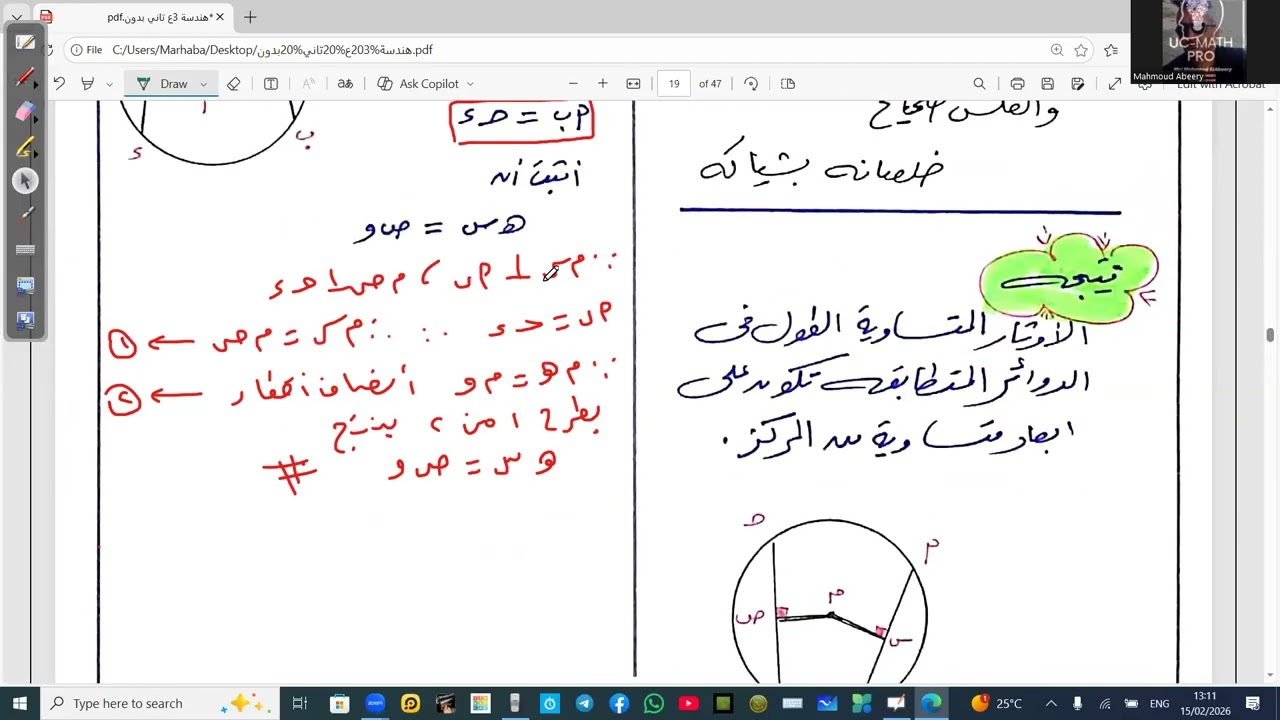 هندسة 3ع تاني بدون.pdf*
File
C:/Users/Marhaba/Desktop/هندسة%203ع%20تاني%20بدون.pdf
UC-MATH
PRO
Mahmoud Abeery
Draw
Ask Copilot
19 of 47
Edit with Acrobat
خلصانه بشياكه
نتيجه
الأوتار المتساوية الطول فى
الدوائر المتطابقه تكون على
ابعاد متساوية من المركز .
ح
م
م
ص
س
ء
ب
م
أب = حـ ء
اثبت أن
هـ س = ص و
∵ م س ⊥ أب ، م ص ⊥ حـ ء
أب = حـ ء ∴ م س = م ص ← ①
∵ م هـ = م و أنصاف أقطار ← ②
بطرح ١ من ٢ ينتج
هـ س = ص و #
Type here to search
zoom
25°C
ENG
13:11
15/02/2026